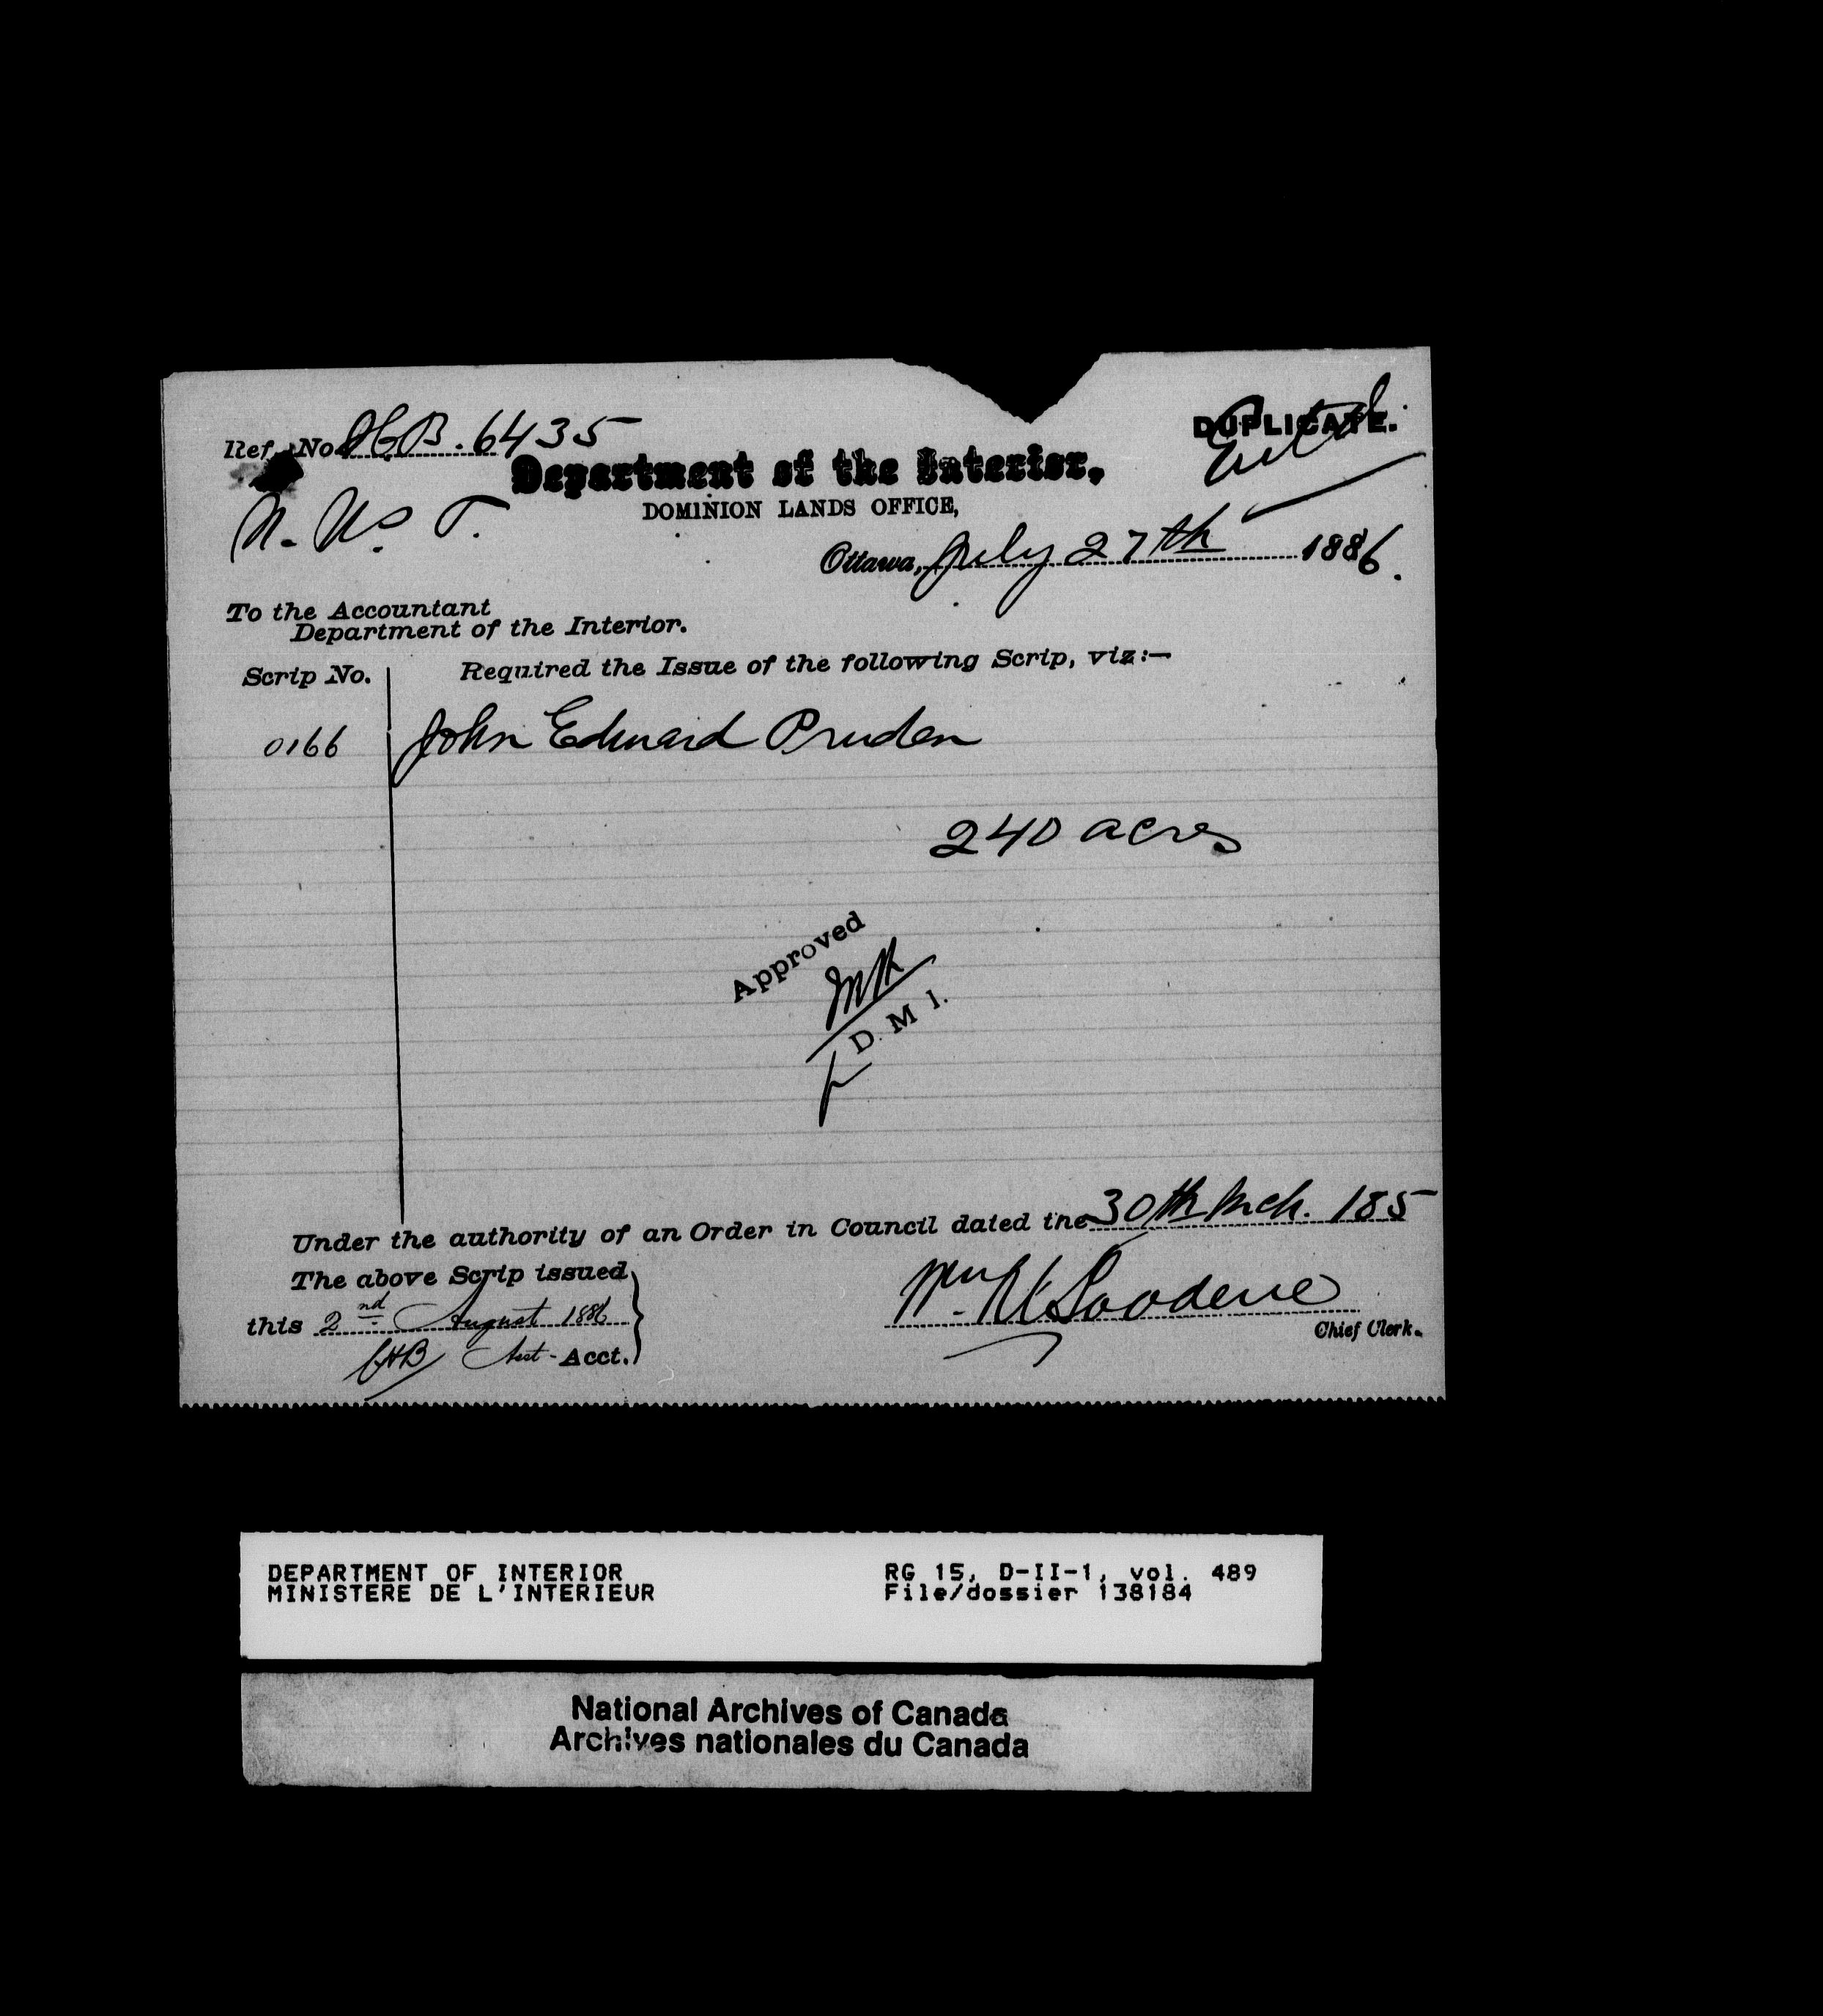 DUPLICATE.
Ref. No HB. 6435
Ent'd.
Department of the Interior,
DOMINION LANDS OFFICE,
N. W. T.
Ottawa, July 27th 1886.
To the Accountant
Department of the Interior.
Scrip No. Required the Issue of the following Scrip, viz:—
0166 John Edward Pruden
240 acres
Approved
D. M. I.
Under the authority of an Order in Council dated the 30th Mch. 185
The above Scrip issued
this 2nd August 1886
Chief Clerk.
Asst- Acct.
DEPARTMENT OF INTERIOR RG 15, D-II-1, vol. 489
MINISTERE DE L'INTERIEUR File/dossier 138184
National Archives of Canada
Archives nationales du Canada